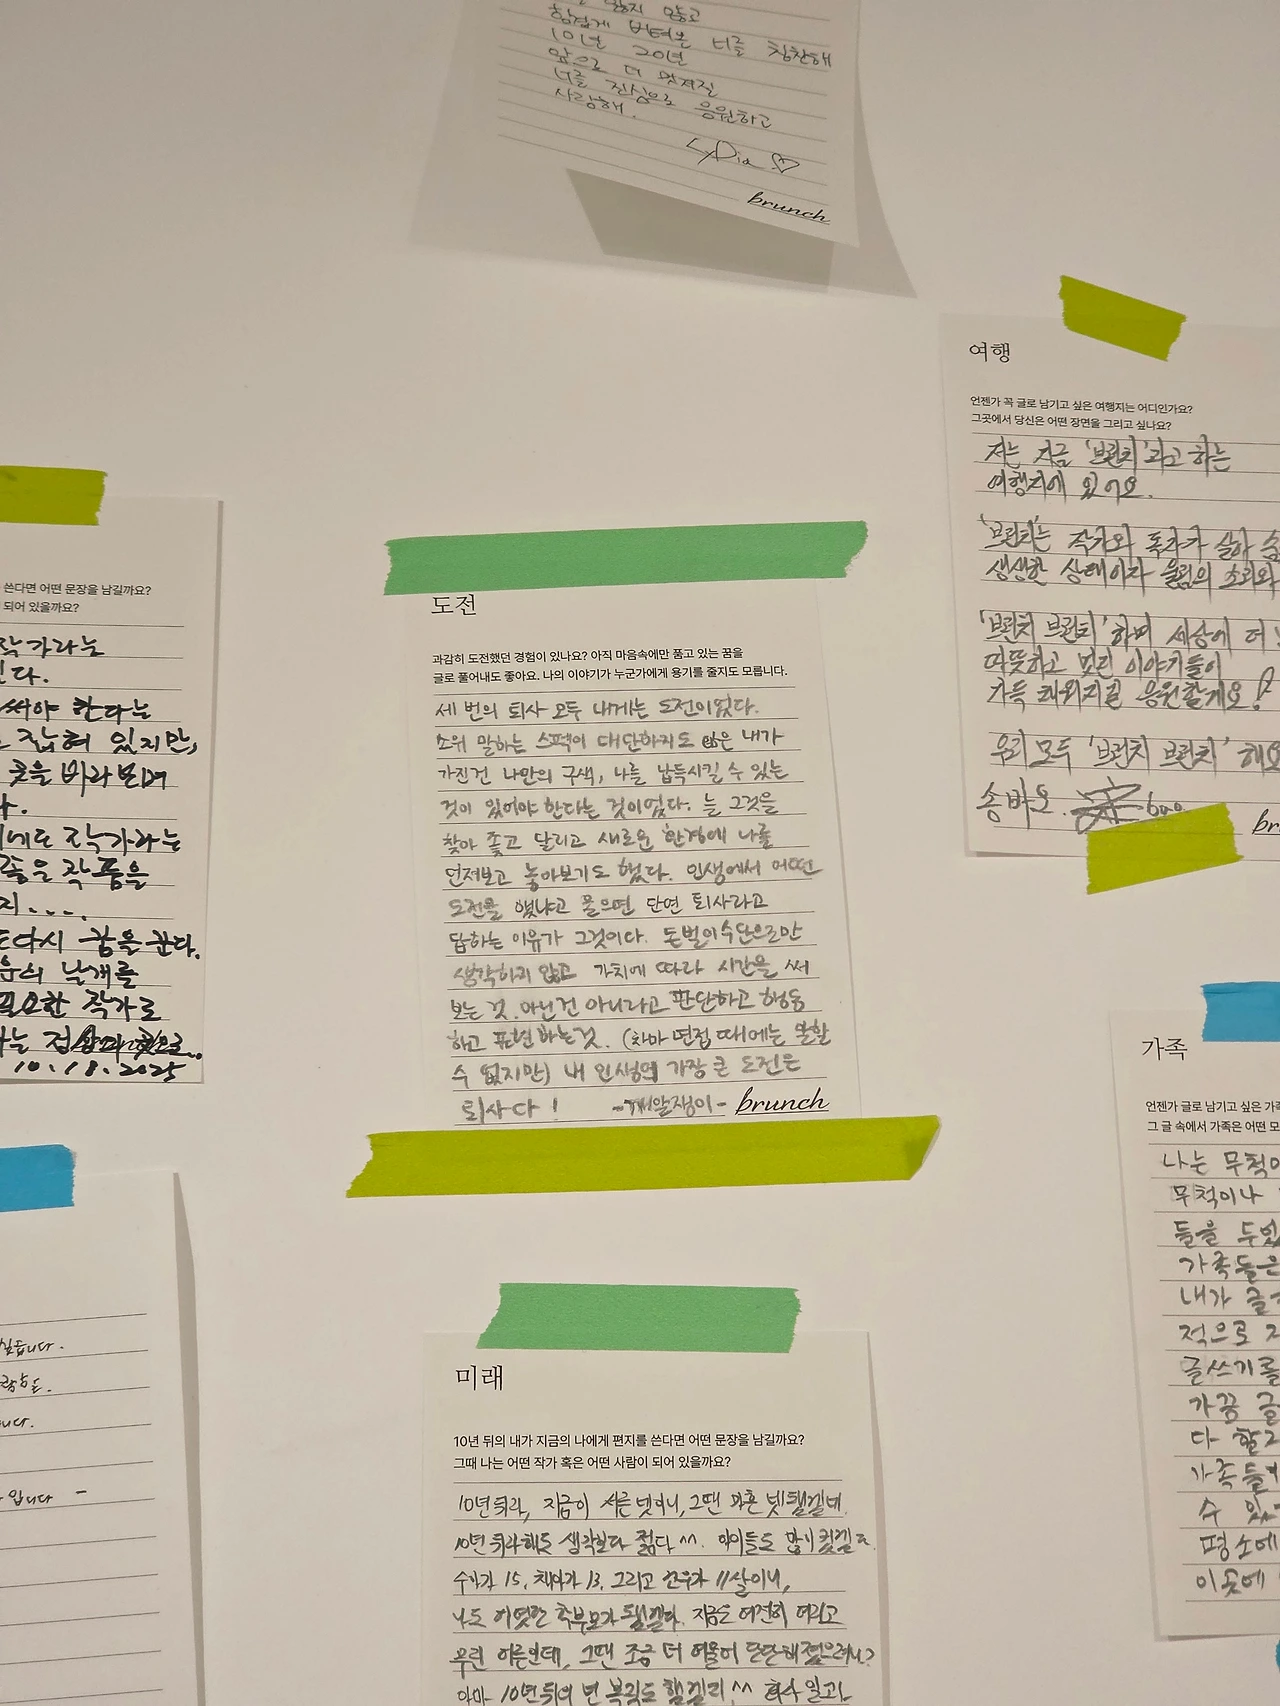 않고
힘겹게 버텨온 너를 칭찬해
10년 20년
앞으로 더 멋져질
너를 진심으로 응원하고
사랑해.
Lydia ♡
brunch
여행
언젠가 꼭 글로 남기고 싶은 여행지는 어디인가요?
그곳에서 당신은 어떤 장면을 그리고 싶나요?
저는 지금 '브런치'라고 하는
여행지에 있어요.
'브런치'는 작가와 독자가 살아 숨
생생한 상태이자 울림의 초리와
'브런치 브런치' 하며 세상에 더
따뜻하고 멋진 이야기들이
가득 채워지길 응원할게요!
우리 모두 '브런치 브런치' 해요
송바오.
br
쓴다면 어떤 문장을 남길까요?
되어 있을까요?
작가라는
다.
써야 한다는
잡혀 있지만,
곳을 바라보며
다.
에도 작가라는
좋은 작품을
지....
또다시 꿈을 꾼다.
날개를
필요한 작가로
나는
10.19.2025
도전
과감히 도전했던 경험이 있나요? 아직 마음속에만 품고 있는 꿈을
글로 풀어내도 좋아요. 나의 이야기가 누군가에게 용기를 줄지도 모릅니다.
세 번의 퇴사 모두 내게는 도전이었다.
소위 말하는 스펙이 대단하지도 않은 내가
가진건 나만의 구색, 나를 납득시킬 수 있는
것이 있어야 한다는 것이었다. 늘 그것을
찾아 좇고 달리고 새로운 환경에 나를
던져보고 놓아보기도 했다. 인생에서 어떤
도전을 했냐고 물으면 단연 퇴사라고
답하는 이유가 그것이다. 돈벌이수단으로만
생각하지 않고 가치에 따라 시간을 써
보는 것. 아닌건 아니라고 판단하고 행동
하고 표현하는것. (차마 면접 때에는 말할
수 없지만) 내 인생의 가장 큰 도전은
퇴사다! -깨알쟁이- brunch
가족
언젠가 글로 남기고 싶은 가족
그 글 속에서 가족은 어떤 모
나는 무척이
무척이나
들을 두었
가족들은
내가 글
적으로 지
글쓰기를
가끔 글
다 할 
가족들
수 있
평소에
이곳에
싶습니다.
니다.
입니다 -
미래
10년 뒤의 내가 지금의 나에게 편지를 쓴다면 어떤 문장을 남길까요?
그때 나는 어떤 작가 혹은 어떤 사람이 되어 있을까요?
10년 뒤라, 지금이 서른 넷이니, 그땐 마흔 넷쯤 됐겠네.
10년 뒤라해도 생각보다 젊다 ^^. 아이들도 많이 컸겠
15, 채아가 13, 그리고 선우가 11살이니,
나도 어엿한 학부모가 됐겠다. 지금은 여전히 여리고
무른 어른인데, 그땐 조금 더 여물어 단단해졌으려나?
아마 10년뒤의 넌 복직도 했겠지 ^^ 회사 일과